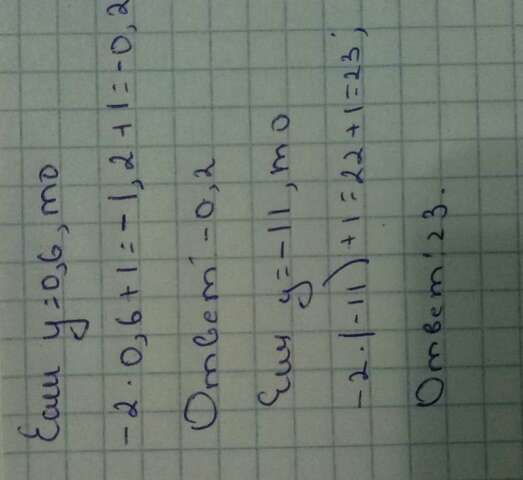 Если y=0,6, то
-2·0,6+1=-1,2+1=-0,2
Ответ: -0,2
Если y=-11, то
-2·(-11)+1=22+1=23;
Ответ: 23.